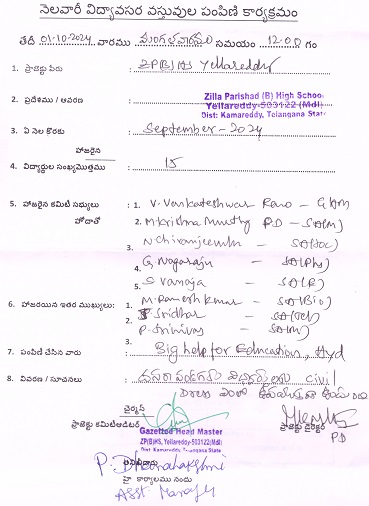 నెలవారీ విద్యావసర వస్తువుల పంపిణి కార్యక్రమం
తేదీ 01-10-2024 వారము మంగళవారము సమయం 12:00 గం
1. ప్రాజెక్టు పేరు ZP(B)HS Yellareddy
2. ప్రదేశము / ఆవరణ
Zilla Parishad (B) High School
Yellareddy-503122 (Mdl)
Dist: Kamareddy, Telangana State
3. ఏ నెల కొరకు September-2024
హాజరైన
4. విద్యార్థుల సంఖ్యమొత్తము 15
5. హాజరైన కమిటి సభ్యులు : 1. V. Venkateshwar Rao - GHM
హోదాతో 2. M Krishna Murthy P.D - SA(M)
3. N Chiranjeevulu - SA(Soc)
4. G. Nagaraju - SA(Phy)
5. S Vanaja - SA(R)
6. హాజరయిన ఇతర ముఖ్యులు: 1. M. Ramesh Kumar - SA(Bio)
2. Sridhar - SA(Tel)
3. P. Srinivas - SA(M)
7. పంపిణి చేసిన వారు Big help for Education, Hyd
8. వివరణ / సూచనలు civil
చైర్మన్
ప్రాజెక్టు కమిటి ప్రాజెక్టు డైరెక్టర్
P.D
Gazetted Head Master
ZP(B)HS, Yellareddy-503122(Mdl)
Dist: Kamareddy, Telangana State
P. Dhanalakshmi
హై కార్యాలము నందు
Asst Manager